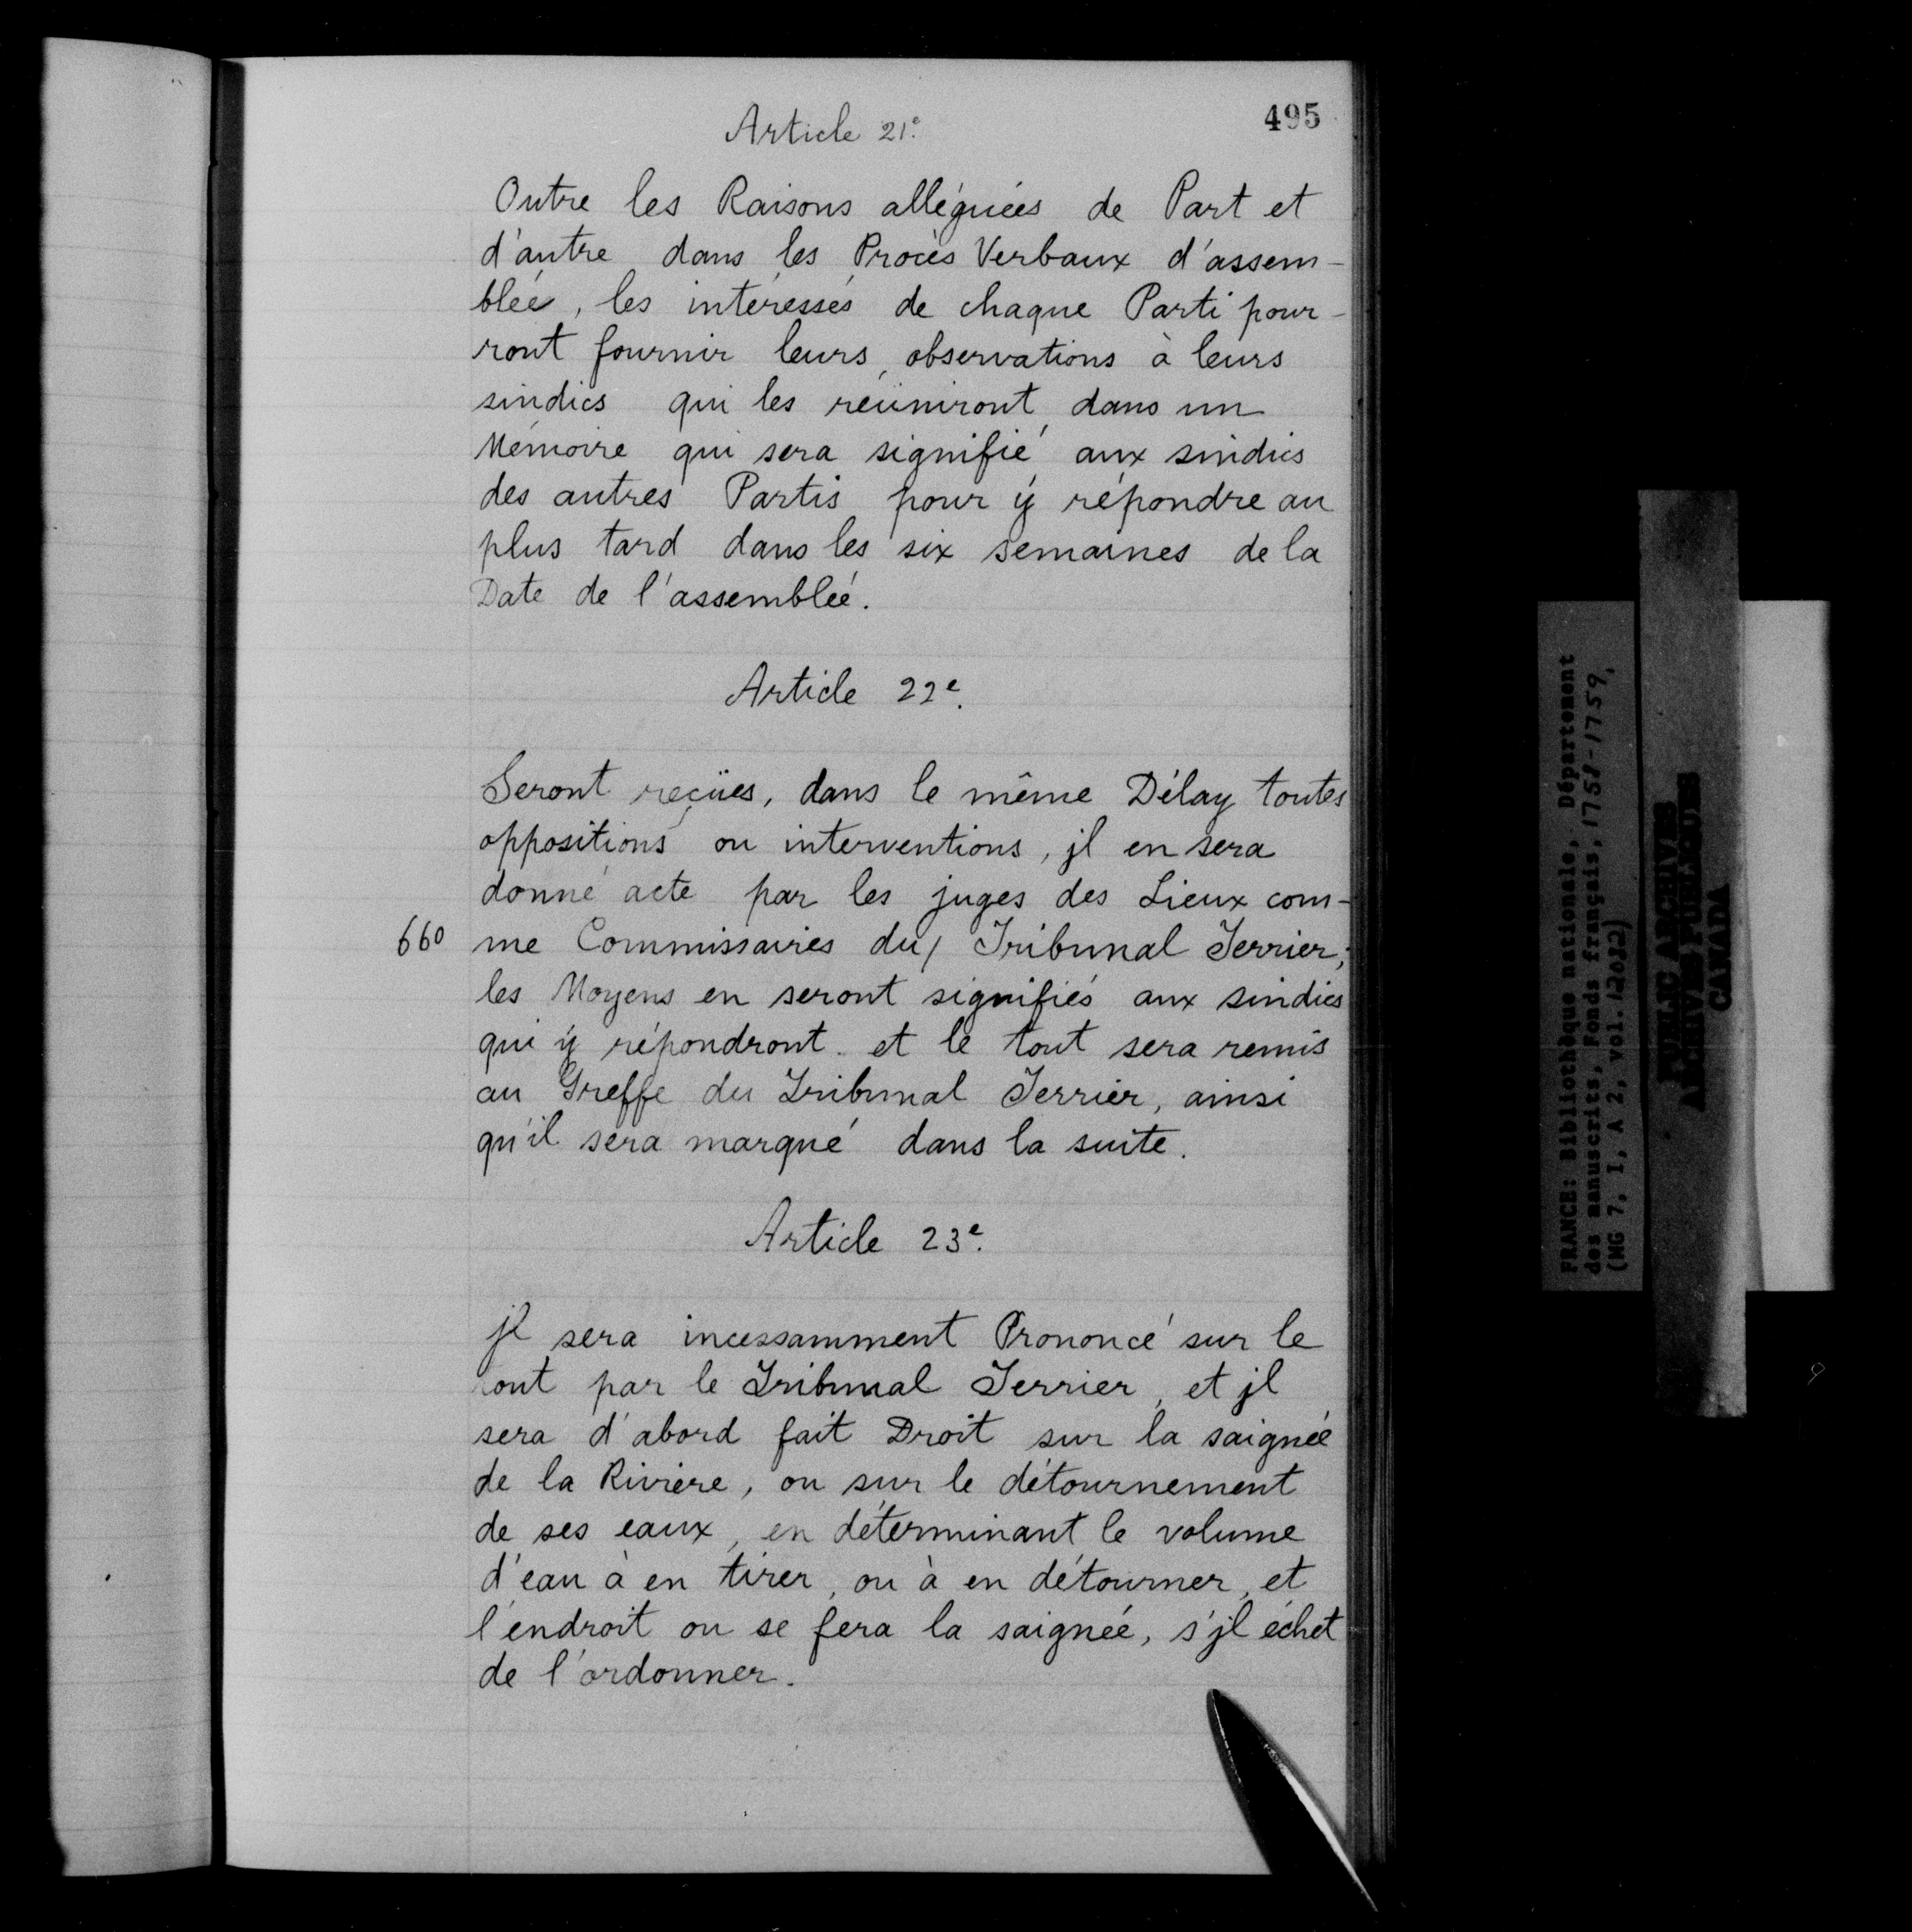 495
Article 21e.
Outre les Raisons alléguées de Part et
d'autre dans les Procès Verbaux d'assem-
bleé, les intéressés de chaque Parti pour-
ront fournir leurs observations à leurs
sindics qui les reüniront dans un
Mémoire qui sera signifié aux sindics
des autres Partis pour ÿ répondre au
plus tard dans les six semaines de la
Date de l'assembleé.
Article 22e.
Seront reçües, dans le même Délay toutes
oppositions ou interventions, jl en sera
donné acte par les juges des Lieux com-
660 me Commissaires du/ Tribunal Terrier;
les Moyens en seront signifiés aux sindics
qui ÿ répondront et le tout sera remis
au Greffe du Tribunal Terrier, ainsi
qu'il sera marqué dans la suite.
Article 23e.
jl sera incessamment Prononcé sur le
tout par le Tribunal Terrier, et jl
sera d'abord fait Droit sur la saigneé
de la Rivière, ou sur le détournement
de ses eaux, en déterminant le volume
d'eau à en tirer, ou à en détourner, et
l'endroit ou se fera la saigneé, s'jl échet
de l'ordonner.
FRANCE: Bibliothèque nationale, Département
des manuscrits, Fonds français, 1751-1759,
(MG 7, I, A 2, vol. 12022)
PUBLIC ARCHIVES
ARCHIVES PUBLIQUES
CANADA